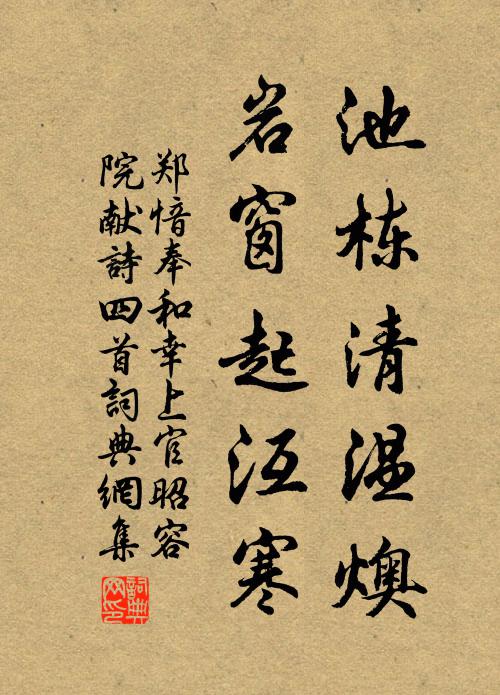 池栋清温燠
岩窗起沍寒
郑愔奉和幸上官昭容
院献詩四首詞典網集
詞典
网印